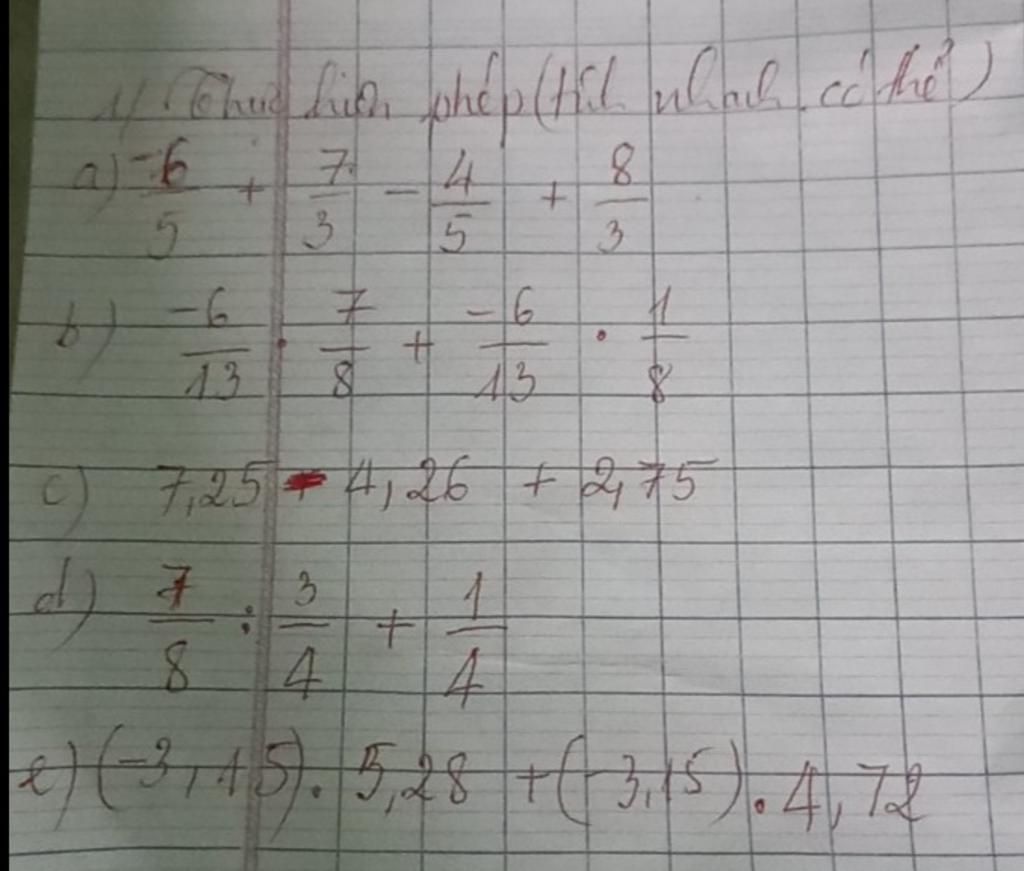 1) Thực hiện phép (tính nhanh có thể)
a) -6/5 + 7/3 - 4/5 + 8/3
b) -6/13 . 7/8 + -6/13 . 1/8
c) 7,25 - 4,26 + 2,75
d) 7/8 : 3/4 + 1/4
e) (-3,15) . 5,28 + (-3,15) . 4,72